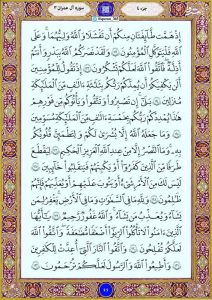 جزء ٤
سوره آل عمران ٣
إِذْ هَمَّت طَّآئِفَتَانِ مِنكُمْ أَن تَفْشَلَا وَٱللَّهُ وَلِيُّهُمَا وَعَلَى
ٱللَّهِ فَلْيَتَوَكَّلِ ٱلْمُؤْمِنُونَ ١٢٢ وَلَقَدْ نَصَرَكُمُ ٱللَّهُ بِبَدْرٍ وَأَنتُمْ
أَذِلَّةٌ فَٱتَّقُوا۟ ٱللَّهَ لَعَلَّكُمْ تَشْكُرُونَ ١٢٣ إِذْ تَقُولُ لِلْمُؤْمِنِينَ
أَلَن يَكْفِيَكُمْ أَن يُمِدَّكُمْ رَبُّكُم بِثَلَٰثَةِ ءَالَٰفٍ مِّنَ ٱلْمَلَٰٓئِكَةِ
مُنزَلِينَ ١٢٤ بَلَىٰٓ إِن تَصْبِرُوا۟ وَتَتَّقُوا۟ وَيَأْتُوكُم مِّن فَوْرِهِمْ
هَٰذَا يُمْدِدْكُمْ رَبُّكُم بِخَمْسَةِ ءَالَٰفٍ مِّنَ ٱلْمَلَٰٓئِكَةِ مُسَوِّمِينَ
١٢٥ وَمَا جَعَلَهُ ٱللَّهُ إِلَّا بُشْرَىٰ لَكُمْ وَلِتَطْمَئِنَّ قُلُوبُكُم
بِهِۦ وَمَا ٱلنَّصْرُ إِلَّا مِنْ عِندِ ٱللَّهِ ٱلْعَزِيزِ ٱلْحَكِيمِ ١٢٦ لِيَقْطَعَ
طَرَفًا مِّنَ ٱلَّذِينَ كَفَرُوٓا۟ أَوْ يَكْبِتَهُمْ فَيَنقَلِبُوا۟ خَآئِبِينَ ١٢٧
لَيْسَ لَكَ مِنَ ٱلْأَمْرِ شَىْءٌ أَوْ يَتُوبَ عَلَيْهِمْ أَوْ يُعَذِّبَهُمْ فَإِنَّهُمْ
ظَٰلِمُونَ ١٢٨ وَلِلَّهِ مَا فِى ٱلسَّمَٰوَٰتِ وَمَا فِى ٱلْأَرْضِ يَغْفِرُ لِمَن
يَشَآءُ وَيُعَذِّبُ مَن يَشَآءُ وَٱللَّهُ غَفُورٌ رَّحِيمٌ ١٢٩ يَٰٓأَيُّهَا
ٱلَّذِينَ ءَامَنُوا۟ لَا تَأْكُلُوا۟ ٱلرِّبَوٰٓا۟ أَضْعَٰفًا مُّضَٰعَفَةً وَٱتَّقُوا۟ ٱللَّهَ
لَعَلَّكُمْ تُفْلِحُونَ ١٣٠ وَٱتَّقُوا۟ ٱلنَّارَ ٱلَّتِىٓ أُعِدَّتْ لِلْكَٰفِرِينَ
١٣١ وَأَطِيعُوا۟ ٱللَّهَ وَٱلرَّسُولَ لَعَلَّكُمْ تُرْحَمُونَ ١٣٢
٦٦